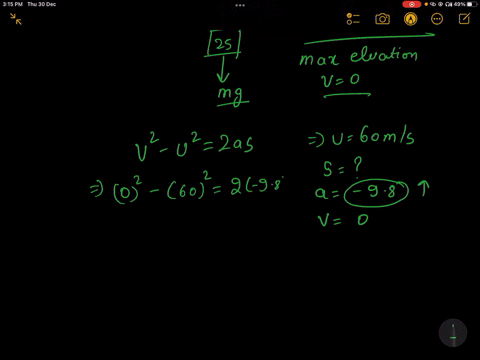 3:15 PM Thu 30 Dec
49%
25
mg
max elvation
V=0
V² - U² = 2as
⇒ (0)² - (60)² = 2(-9.8
⇒ U = 60m/s
S = ?
a = -9.8 ↑
V = 0